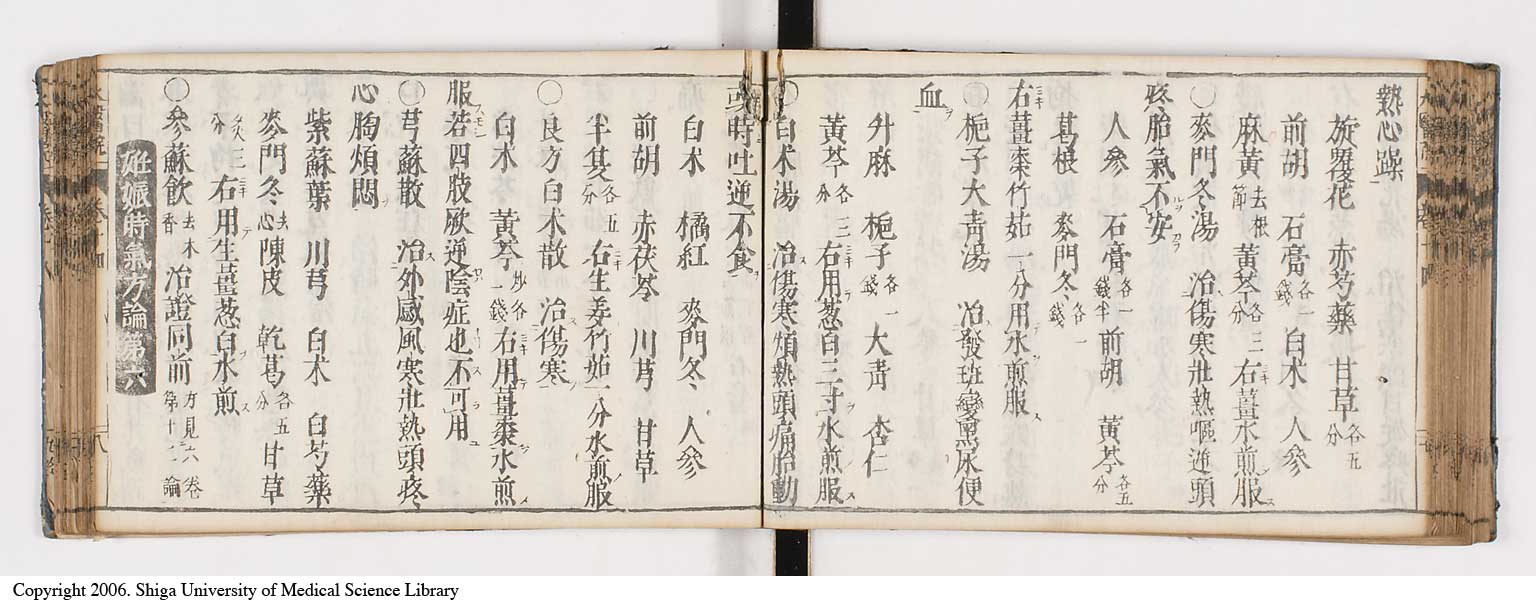 熱心躁
旋覆花 赤芍藥 甘草各五分
前胡 石膏各一錢 白朮 人參
麻黃去根節 黃芩各三分 右薑水煎服
○麥門冬湯 治傷寒壯熱嘔逆頭
疼胎氣不安
人參 石膏各一錢半 前胡 黃芩各五分
葛根 麥門冬各一錢
右薑棗竹茹一分用水煎服
○梔子大青湯 治發班變黑尿便
血
升麻 梔子各一錢 大青 杏仁
黃芩各三分 右用葱白三寸水煎服
○白朮湯 治傷寒煩熱頭痛胎動
或時吐逆不食
白朮 橘紅 麥門冬 人參
前胡 赤茯苓 川芎 甘草
半夏各五分 右生姜竹茹一分水煎服
○良方白朮散 治傷寒
白朮 黃芩炒各一錢 右用薑棗水煎
服若四肢厥逆陰症也不可用
○芎蘇散 治外感風寒壯熱頭疼
心胸煩悶
紫蘇葉 川芎 白朮 白芍藥
麥門冬去心 陳皮 乾葛各五分 甘草
炙三分 右用生薑葱白水煎
○參蘇飲去木香 治證同前方見六卷第十一論
妊娠時氣方論第六
Copyright 2006. Shiga University of Medical Science Library